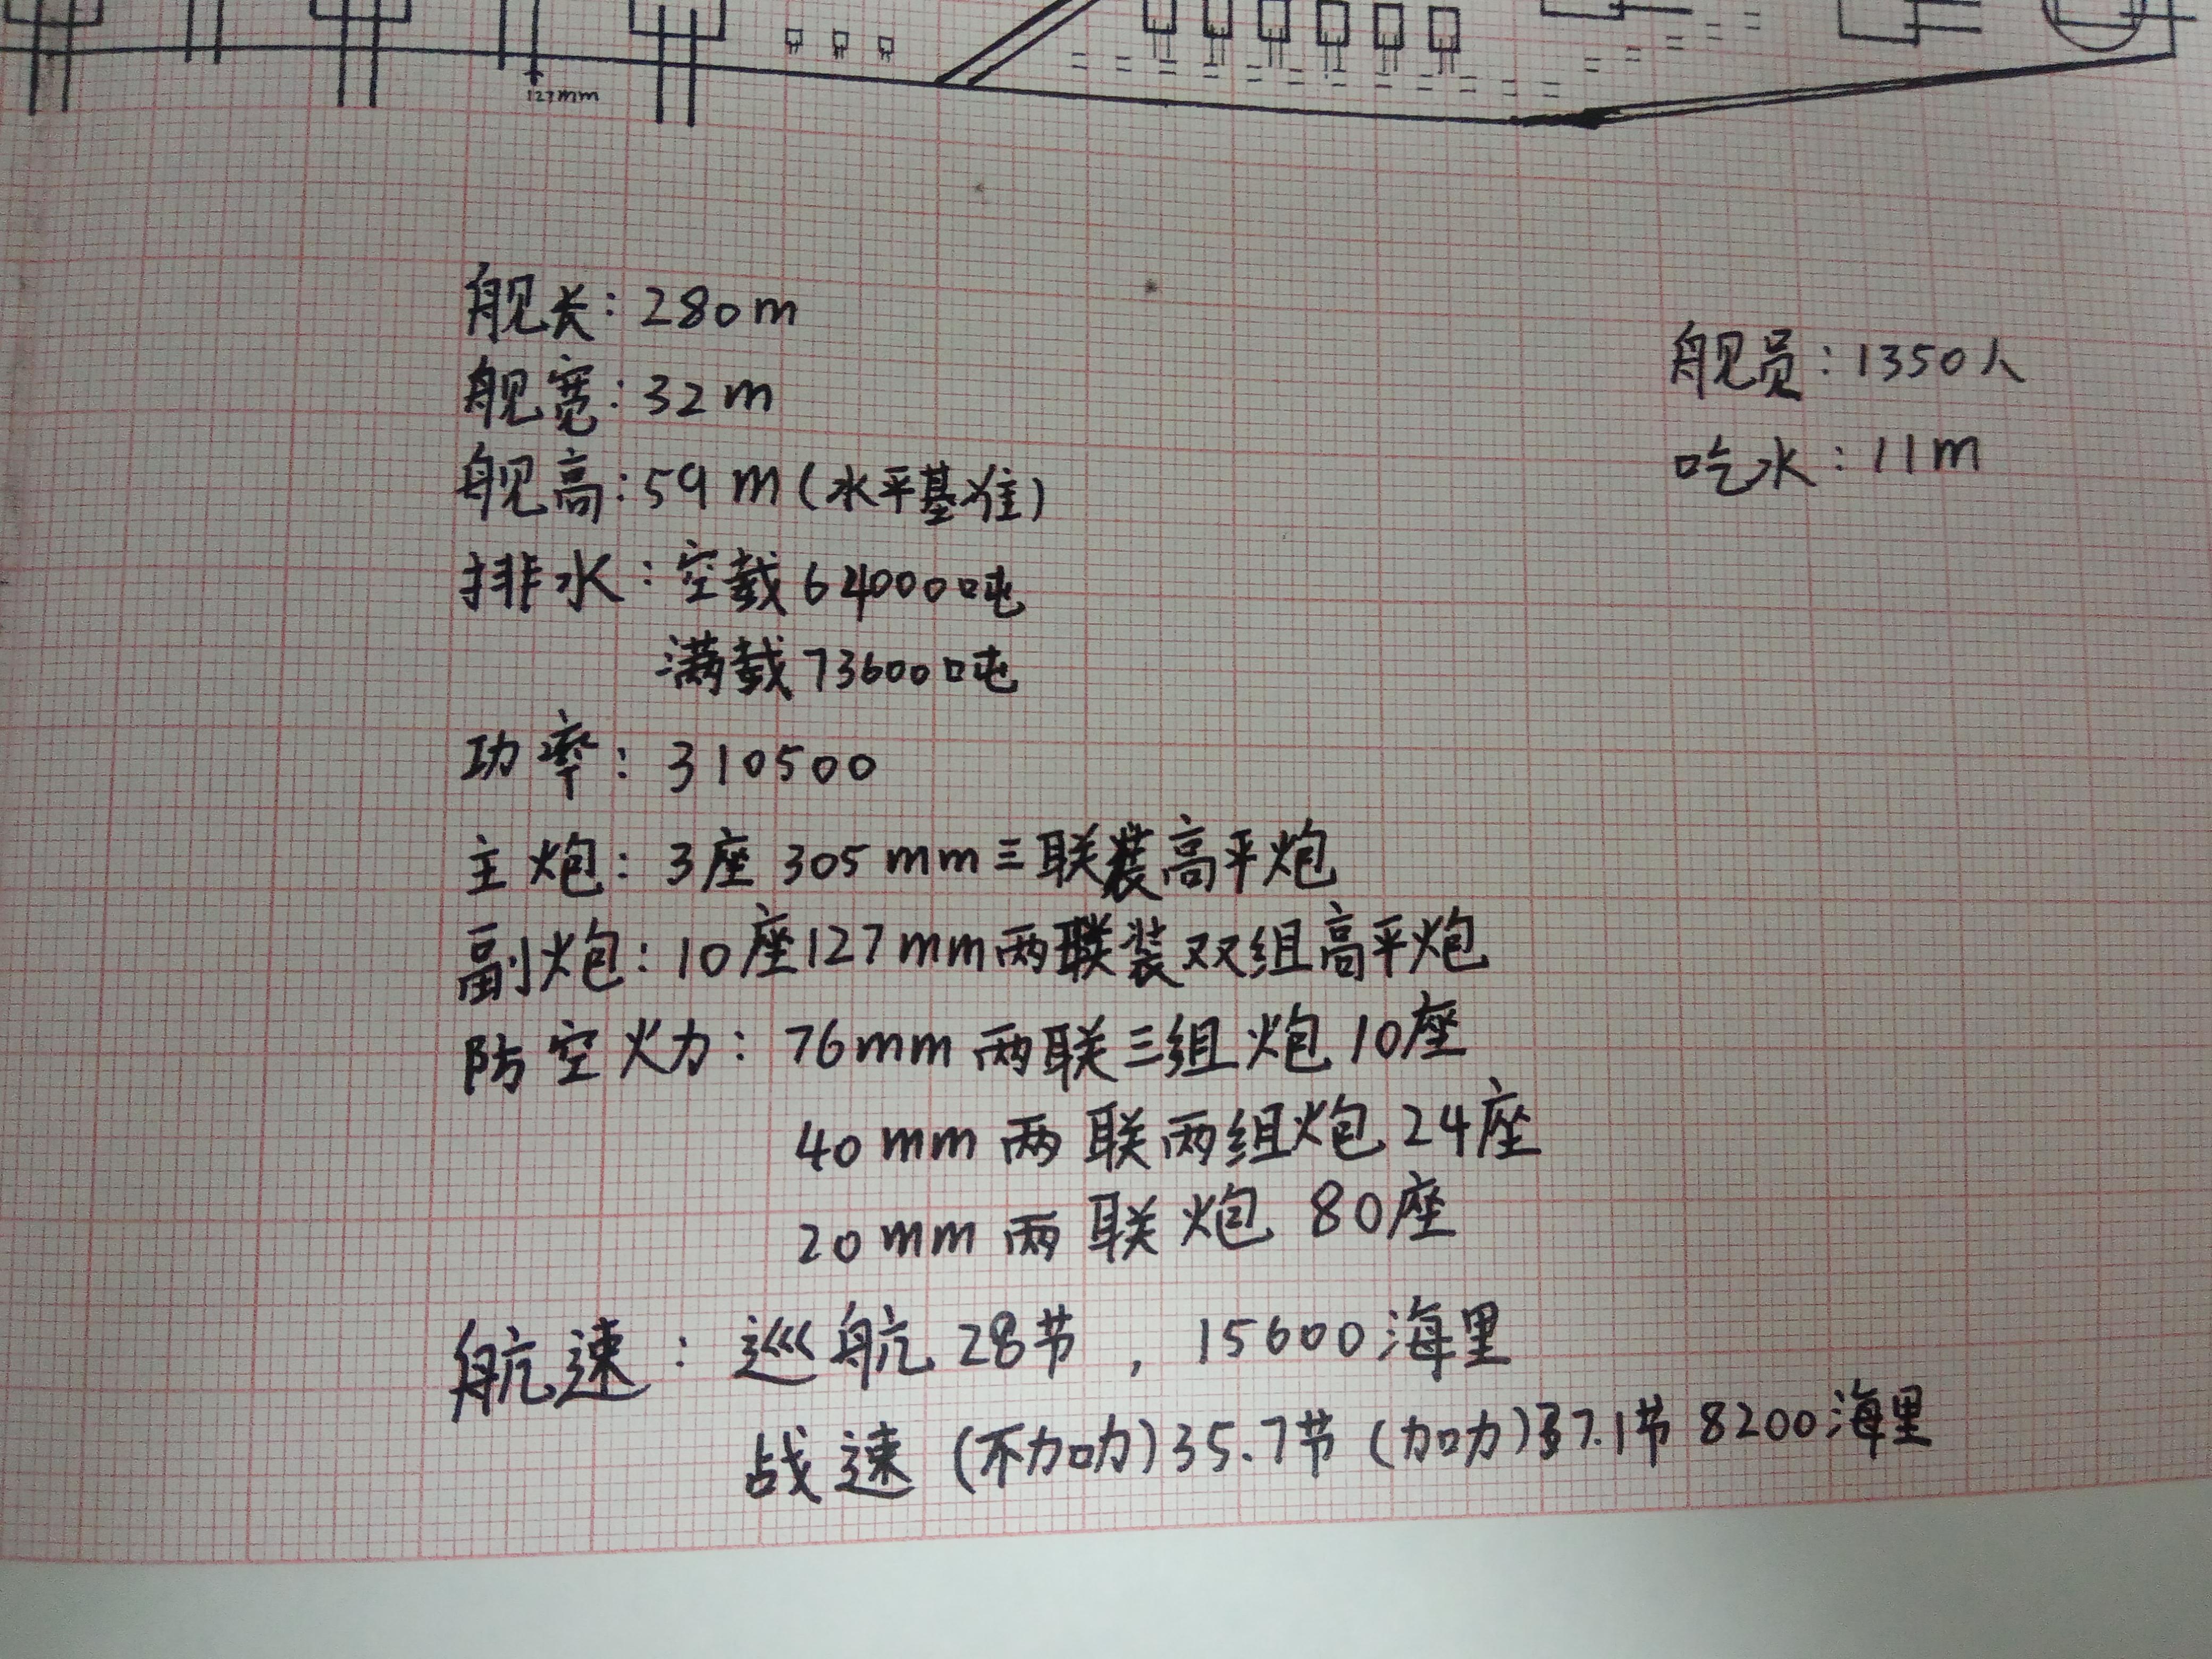 127mm
舰长：280m
舰宽：32m
舰高：59m（水平基准）
排水：空载64000吨
满载73600吨
功率：310500
主炮：3座305mm三联装高平炮
副炮：10座127mm两联装双组高平炮
防空火力：76mm两联三组炮10座
40mm两联两组炮24座
20mm两联炮80座
航速：巡航28节，15600海里
战速（不加力）35.7节（加力）37.1节8200海里
舰员：1350人
吃水：11m